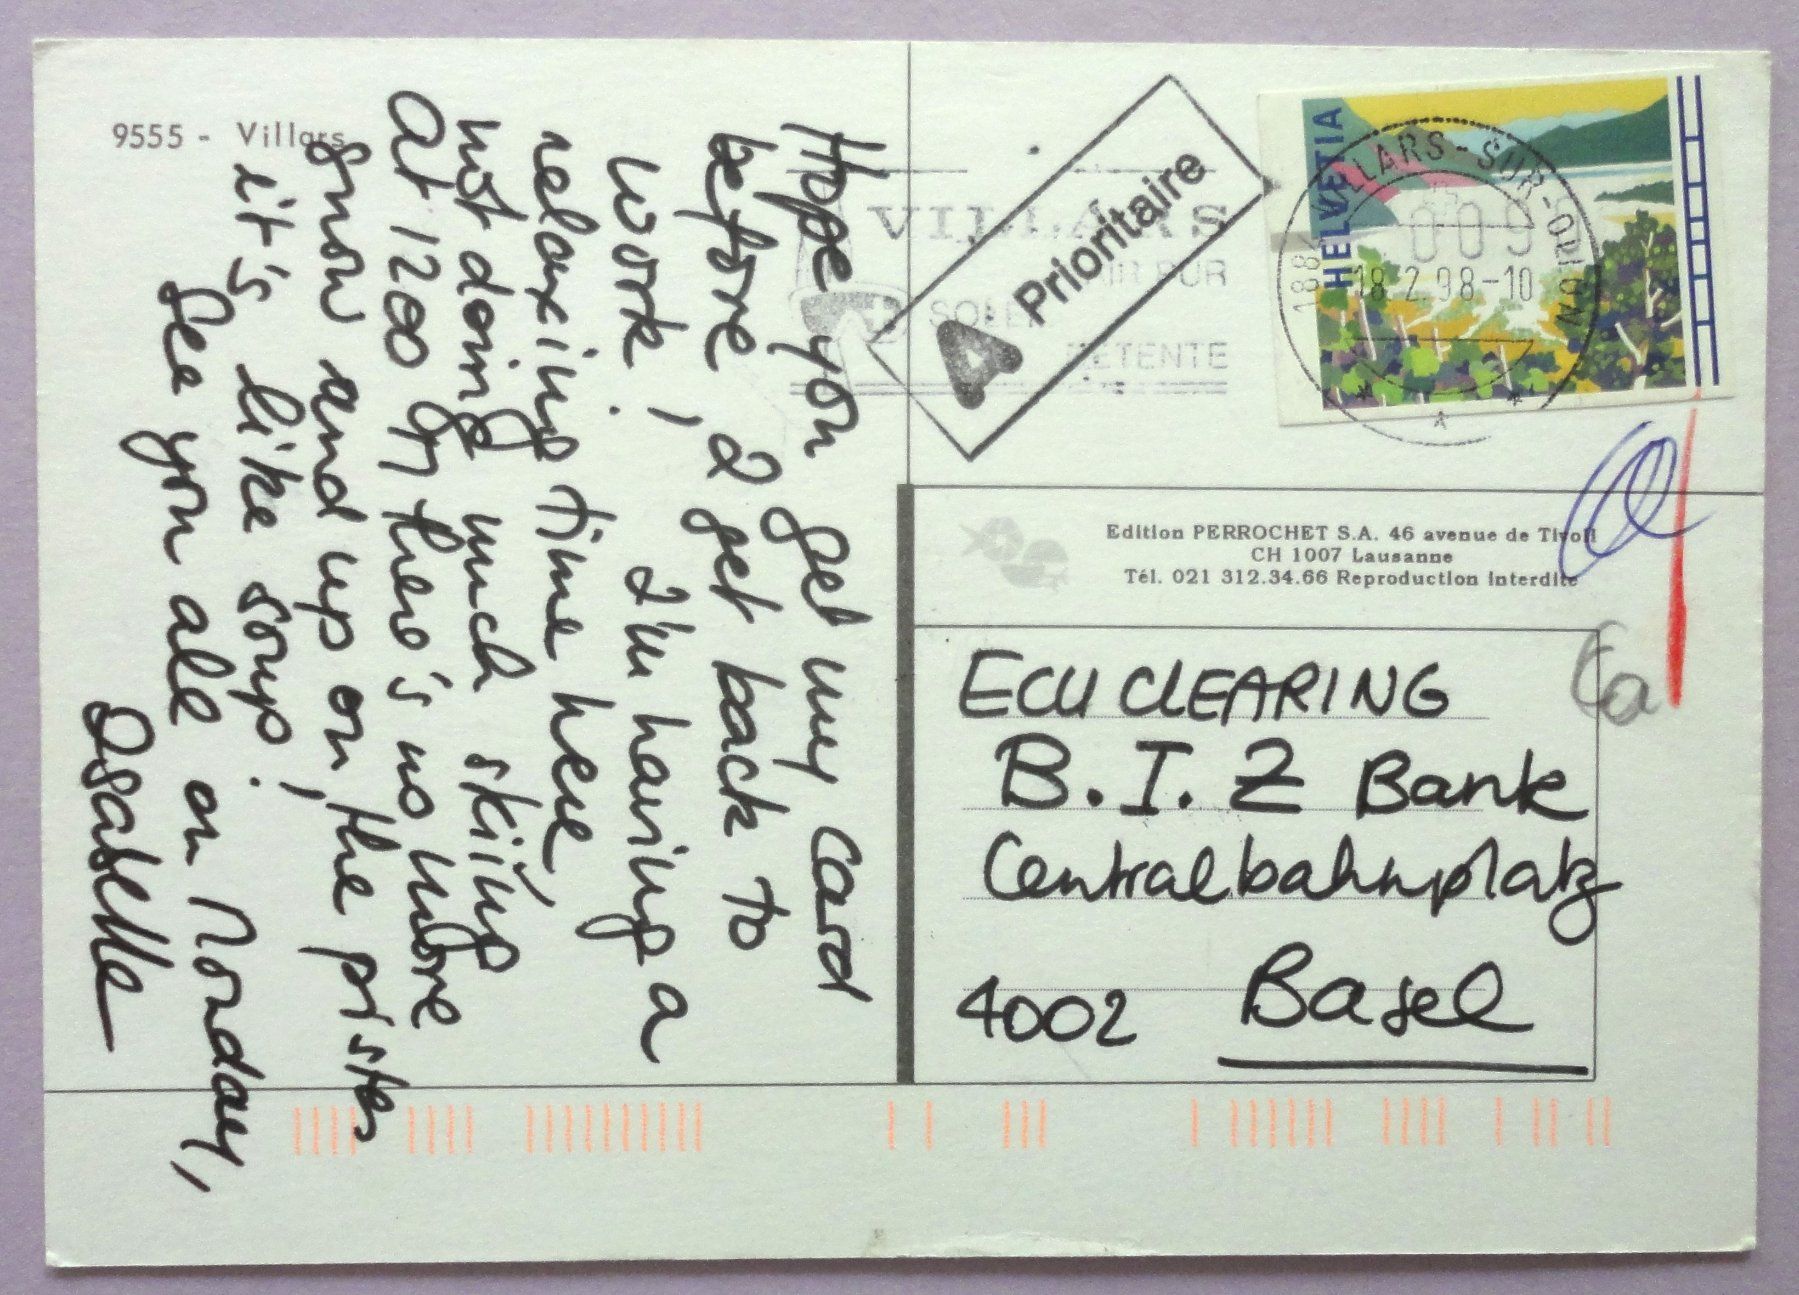 9555 - Villars
Hope you get my card
before, I get back to
work. I'm having a
relaxing time here,
not doing much skiing
At 1200 m there's no more
snow and up on, the pistes
it's like soup!
See you all on Monday,
Isabelle
VILLARS
AIR PUR
SOLEIL
DETENTE
A Prioritaire
HELVETIA
VILLARS-SUR-OLLON
18.2.98-10
A
Edition PERROCHET S.A. 46 avenue de Tivoli
CH 1007 Lausanne
Tél. 021 312.34.66 Reproduction interdite
ECU CLEARING
B.I.Z Bank
Centralbahnplatz
4002 Basel